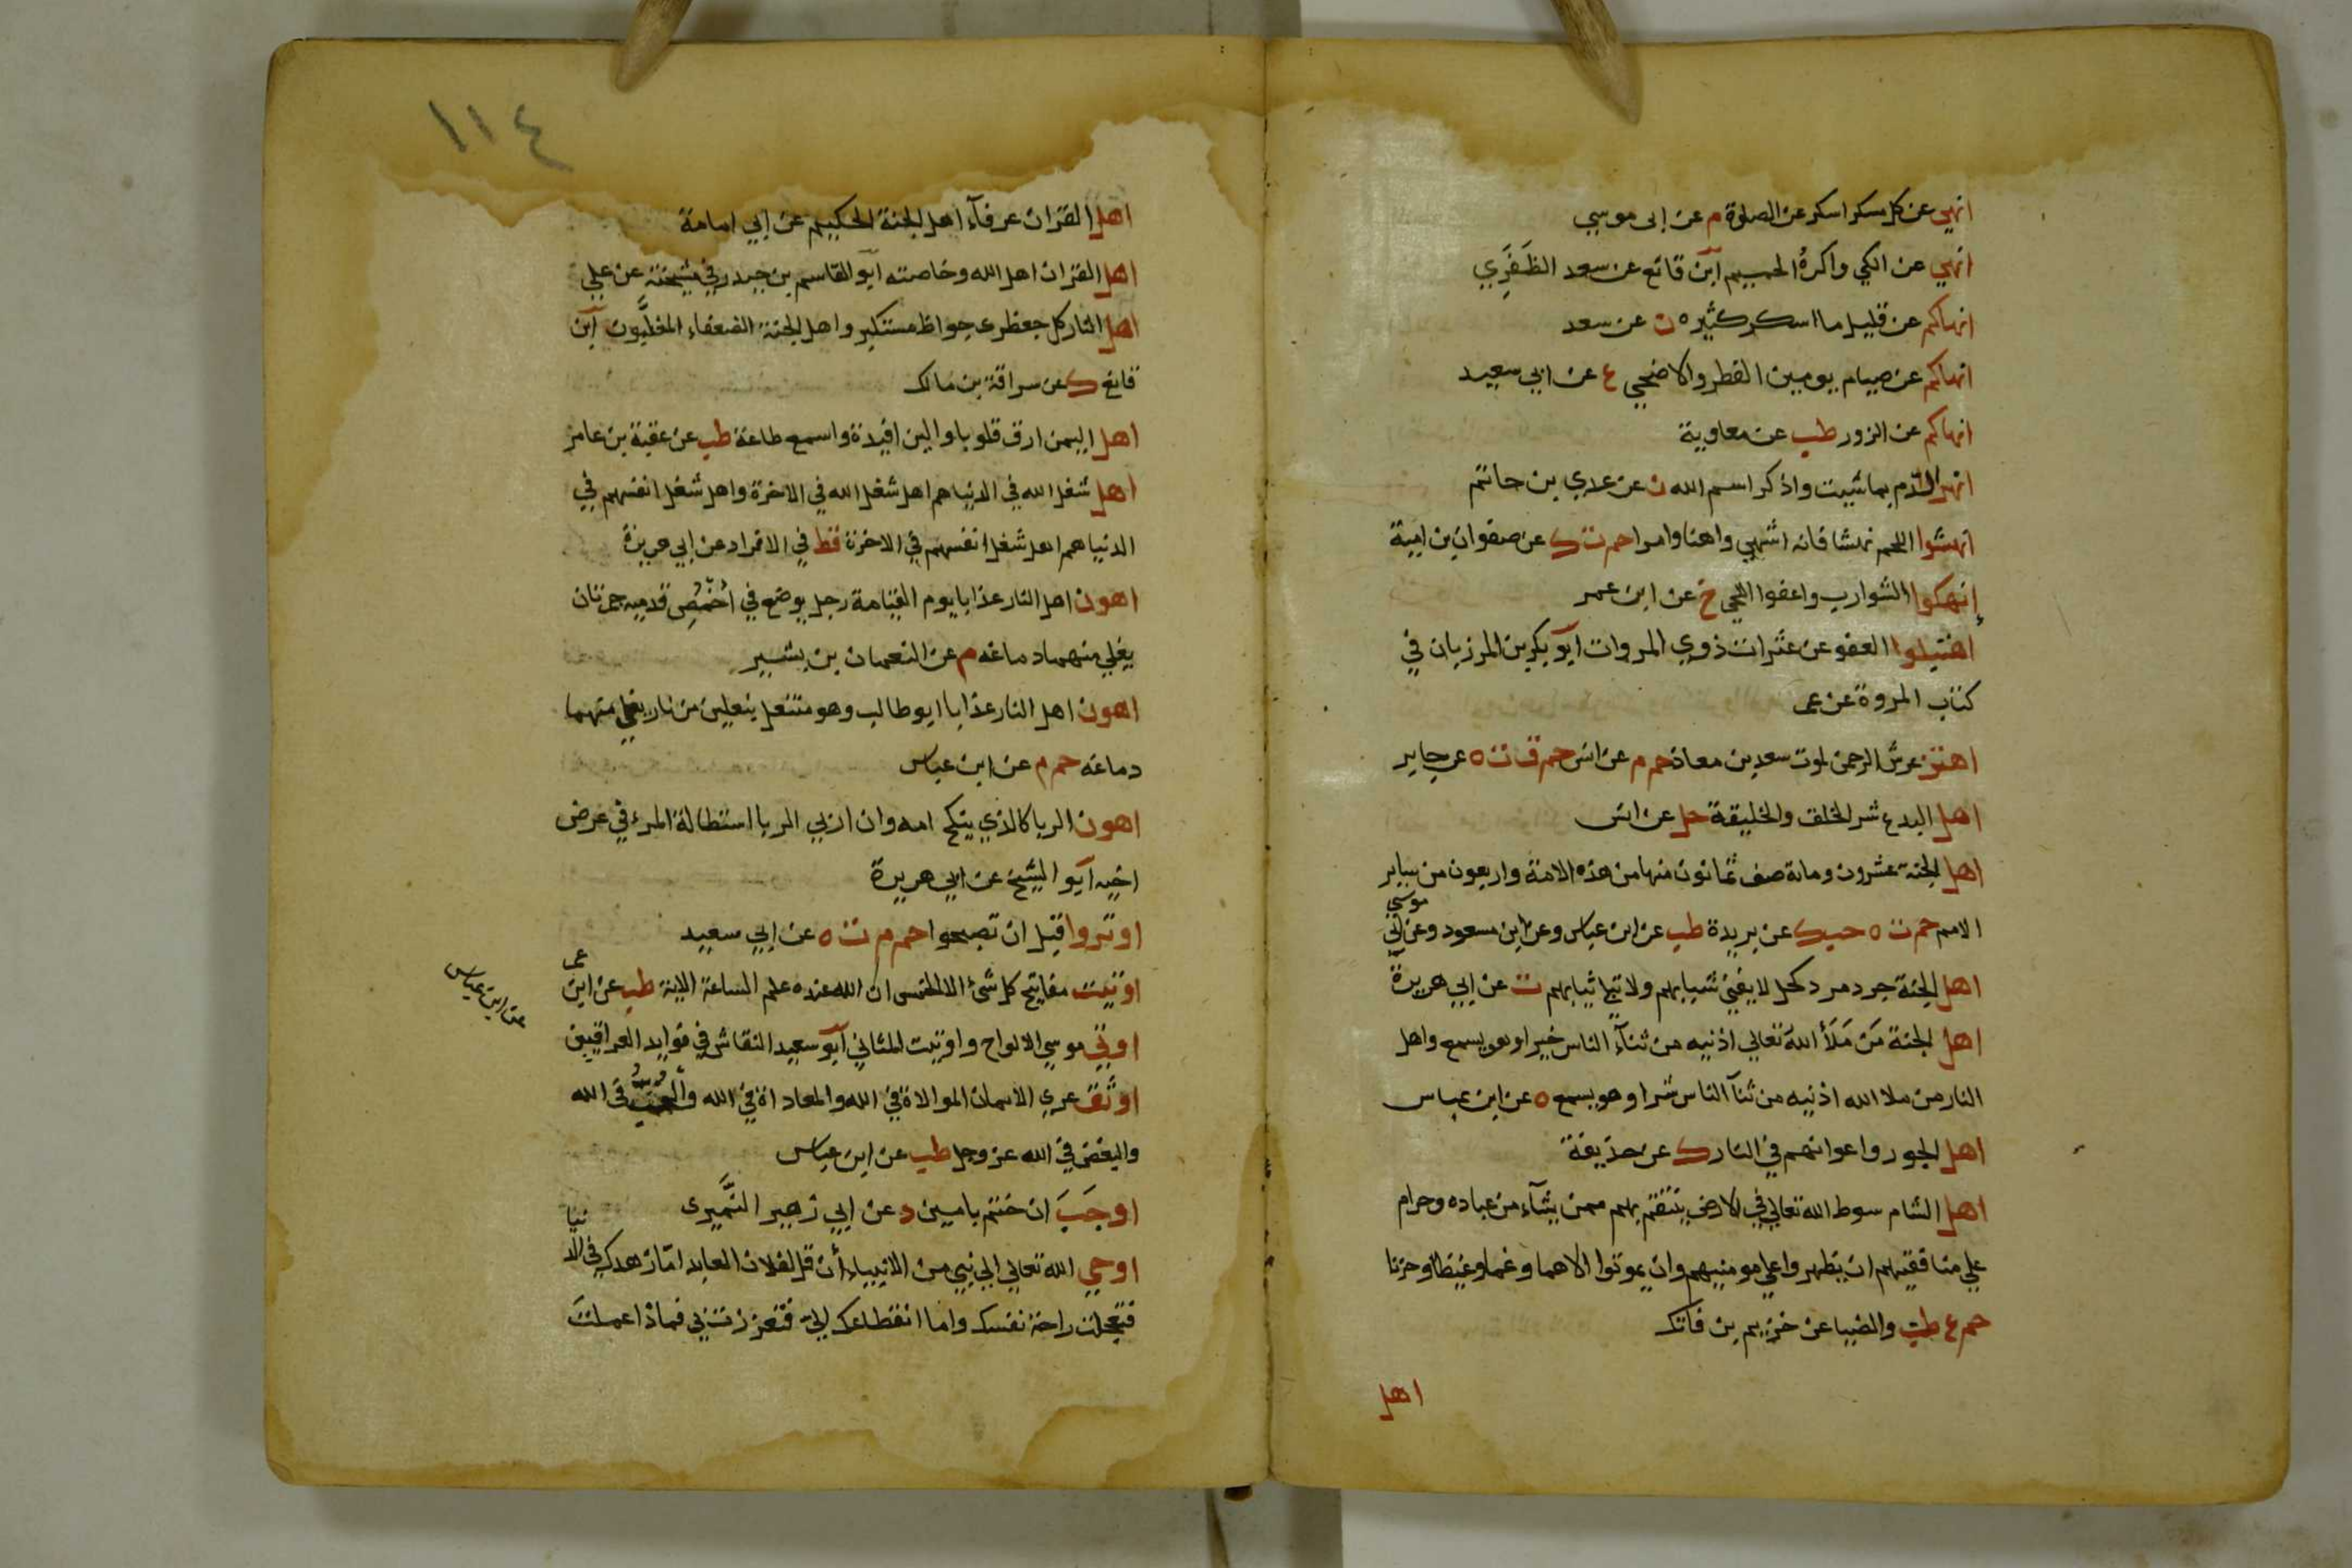 انهي عن كل مسكر اسكر عن الصلوة م عن ابى موسي
انهي عن الكي واكره الحميم ابن قانع عن سعد الظَفَرَي
انهاكم عن قليل ما اسكر كثيره ن عن سعد
انهاكم عن صيام يومين الفطر والاضحي ع عن ابي سعيد
انهاكم عن الزور طب عن معاوية
انهر الدم بما شيت واذكر اسم الله ن عن عدي بن حاتم
انهشوا اللحم نهشا فانه اشهي واهنا وامرا حم ت ك عن صفوان بن امية
إنهكوا الشوارب واعفوا اللحي خ عن ابن عمر
اهتبلوا العفو عن عثرات ذوي المروات ابو بكر بن المرزبان في
كتاب المروة عن عمر
اهتز عرش الرحمن لموت سعد بن معاذ حم م عن انس حم ق ت ه عن جابر
اهل البدع شر الخلق والخليقة حل عن انس
اهل الجنة عشرون وماية صف ثمانون منها من هذه الامة واربعون من سابر
الامم حم ت ه حب ك عن بريدة طب عن ابن عباس وعن ابن مسعود وعن ابي موسي
اهل الجنة جرد مرد كحل لا يفني شبابهم ولا تبلي ثيابهم ت عن ابي هريرة
اهل الجنة مَن مَلَأ اللهَ تعالي اذنيه من ثنآء الناس خيرا وهو يسمع واهل
النار من ملا الله اذنيه من ثنآ الناس شرا وهو يسمع ه عن ابن عباس
اهل الجور واعوانهم في النار ك عن حذيفة
اهل الشام سوط الله تعالي في الارض ينتقم بهم ممن يشآء من عباده وحرام
علي منافقيهم ان يظهروا علي مومنيهم وان يموتوا الا هما وغما وغيظا وحزنا
حم ع طب والضيا عن خزيم بن فاتك
اهل
١١٤
اهل القران عرفآء اهل الجنة الحكيم عن ابي امامة
اهل القران اهل الله وخاصته ابو القاسم بن حيدر في مشيخته عن علي
اهل النار كل جعظرى جواظ مستكبر واهل الجنة الضعفاء المغلبون ابن
قانع ك عن سراقة بن مالك
اهل اليمن ارق قلوبا والين افيدة واسمع طاعة طب عن عقبة بن عامر
اهل شغل الله في الدنيا هم اهل شغل الله في الاخرة واهل شغل انفسهم في
الدنيا هم اهل شغل انفسهم في الاخرة قط في الافراد عن ابي هريرة
اهون اهل النار عذابا يوم القيامة رجل يوضع في أخمص قدميه جمرتان
يغلي منهما دماغه م عن النعمان بن بشير
اهون اهل النار عذابا ابو طالب وهو منتعل بنعلين من نار يغلي منهما
دماغه حم م عن ابن عباس
اهون الربا كالذي ينكح امه وان اربي الربا استطالة المرء في عرض
اخيه ابو الشيخ عن ابي هريرة
اوتروا قبل ان تصبحوا حم م ت ه عن ابي سعيد
اوتيت مفاتيح كل شئ الا الخمس ان الله عنده علم الساعة الاية طب عن ابن عمر
اوتي موسي الالواح واوتيت المثاني ابو سعيد النقاش في فوايد العراقيين
عن ابن عباس
اوثق عري الايمان الموالاة في الله والمعاداة في الله والحب في الله
والبغض في الله عز وجل طب عن ابن عباس
اوجَبَ ان ختم بامين د عن ابي زهير النُّمَيرى
اوحي الله تعالي الي نبي من الانبياء أن قل لفلان العابد امّا زهدك في الدنيا
فتعجلت راحة نفسك واما انقطاعك اليّ فتعززت بي فماذا عملتَ